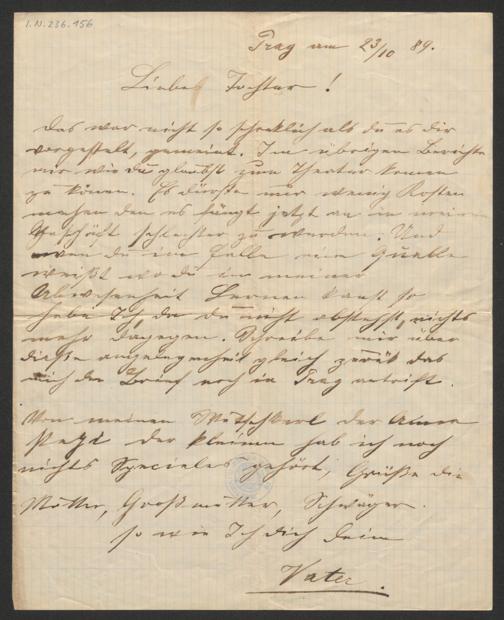 I.N. 236.156
Prag am 23/10 89.
Liebes Tochter!
das war nicht so schreklich als du es dir
vorgestelt, gemeint. Im übrigen Berichte
mir wie du glaubst zum Theater komen
zu könen. Es dürfte mir wenig Kosten
machen den es fängt jetzt an in meinen
Geschäft schlechter zu werden. Und
wen du im falle eine Quelle
weißt wo du in meiner
Abwesenheit Lernen kanst so
habe Ich, da du nicht abstehst, nichts
mehr dagegen. Schreibe mir über
dieße angelegenheit gleich zurük das
mich der Brief noch in Prag antrift.
Von meinen der
der kleinen hab ich noch
nichts Speciales gehört, Grüße die
Mutter, Großmutter, Schwäger.
so wie Ich dich dein
Vater.